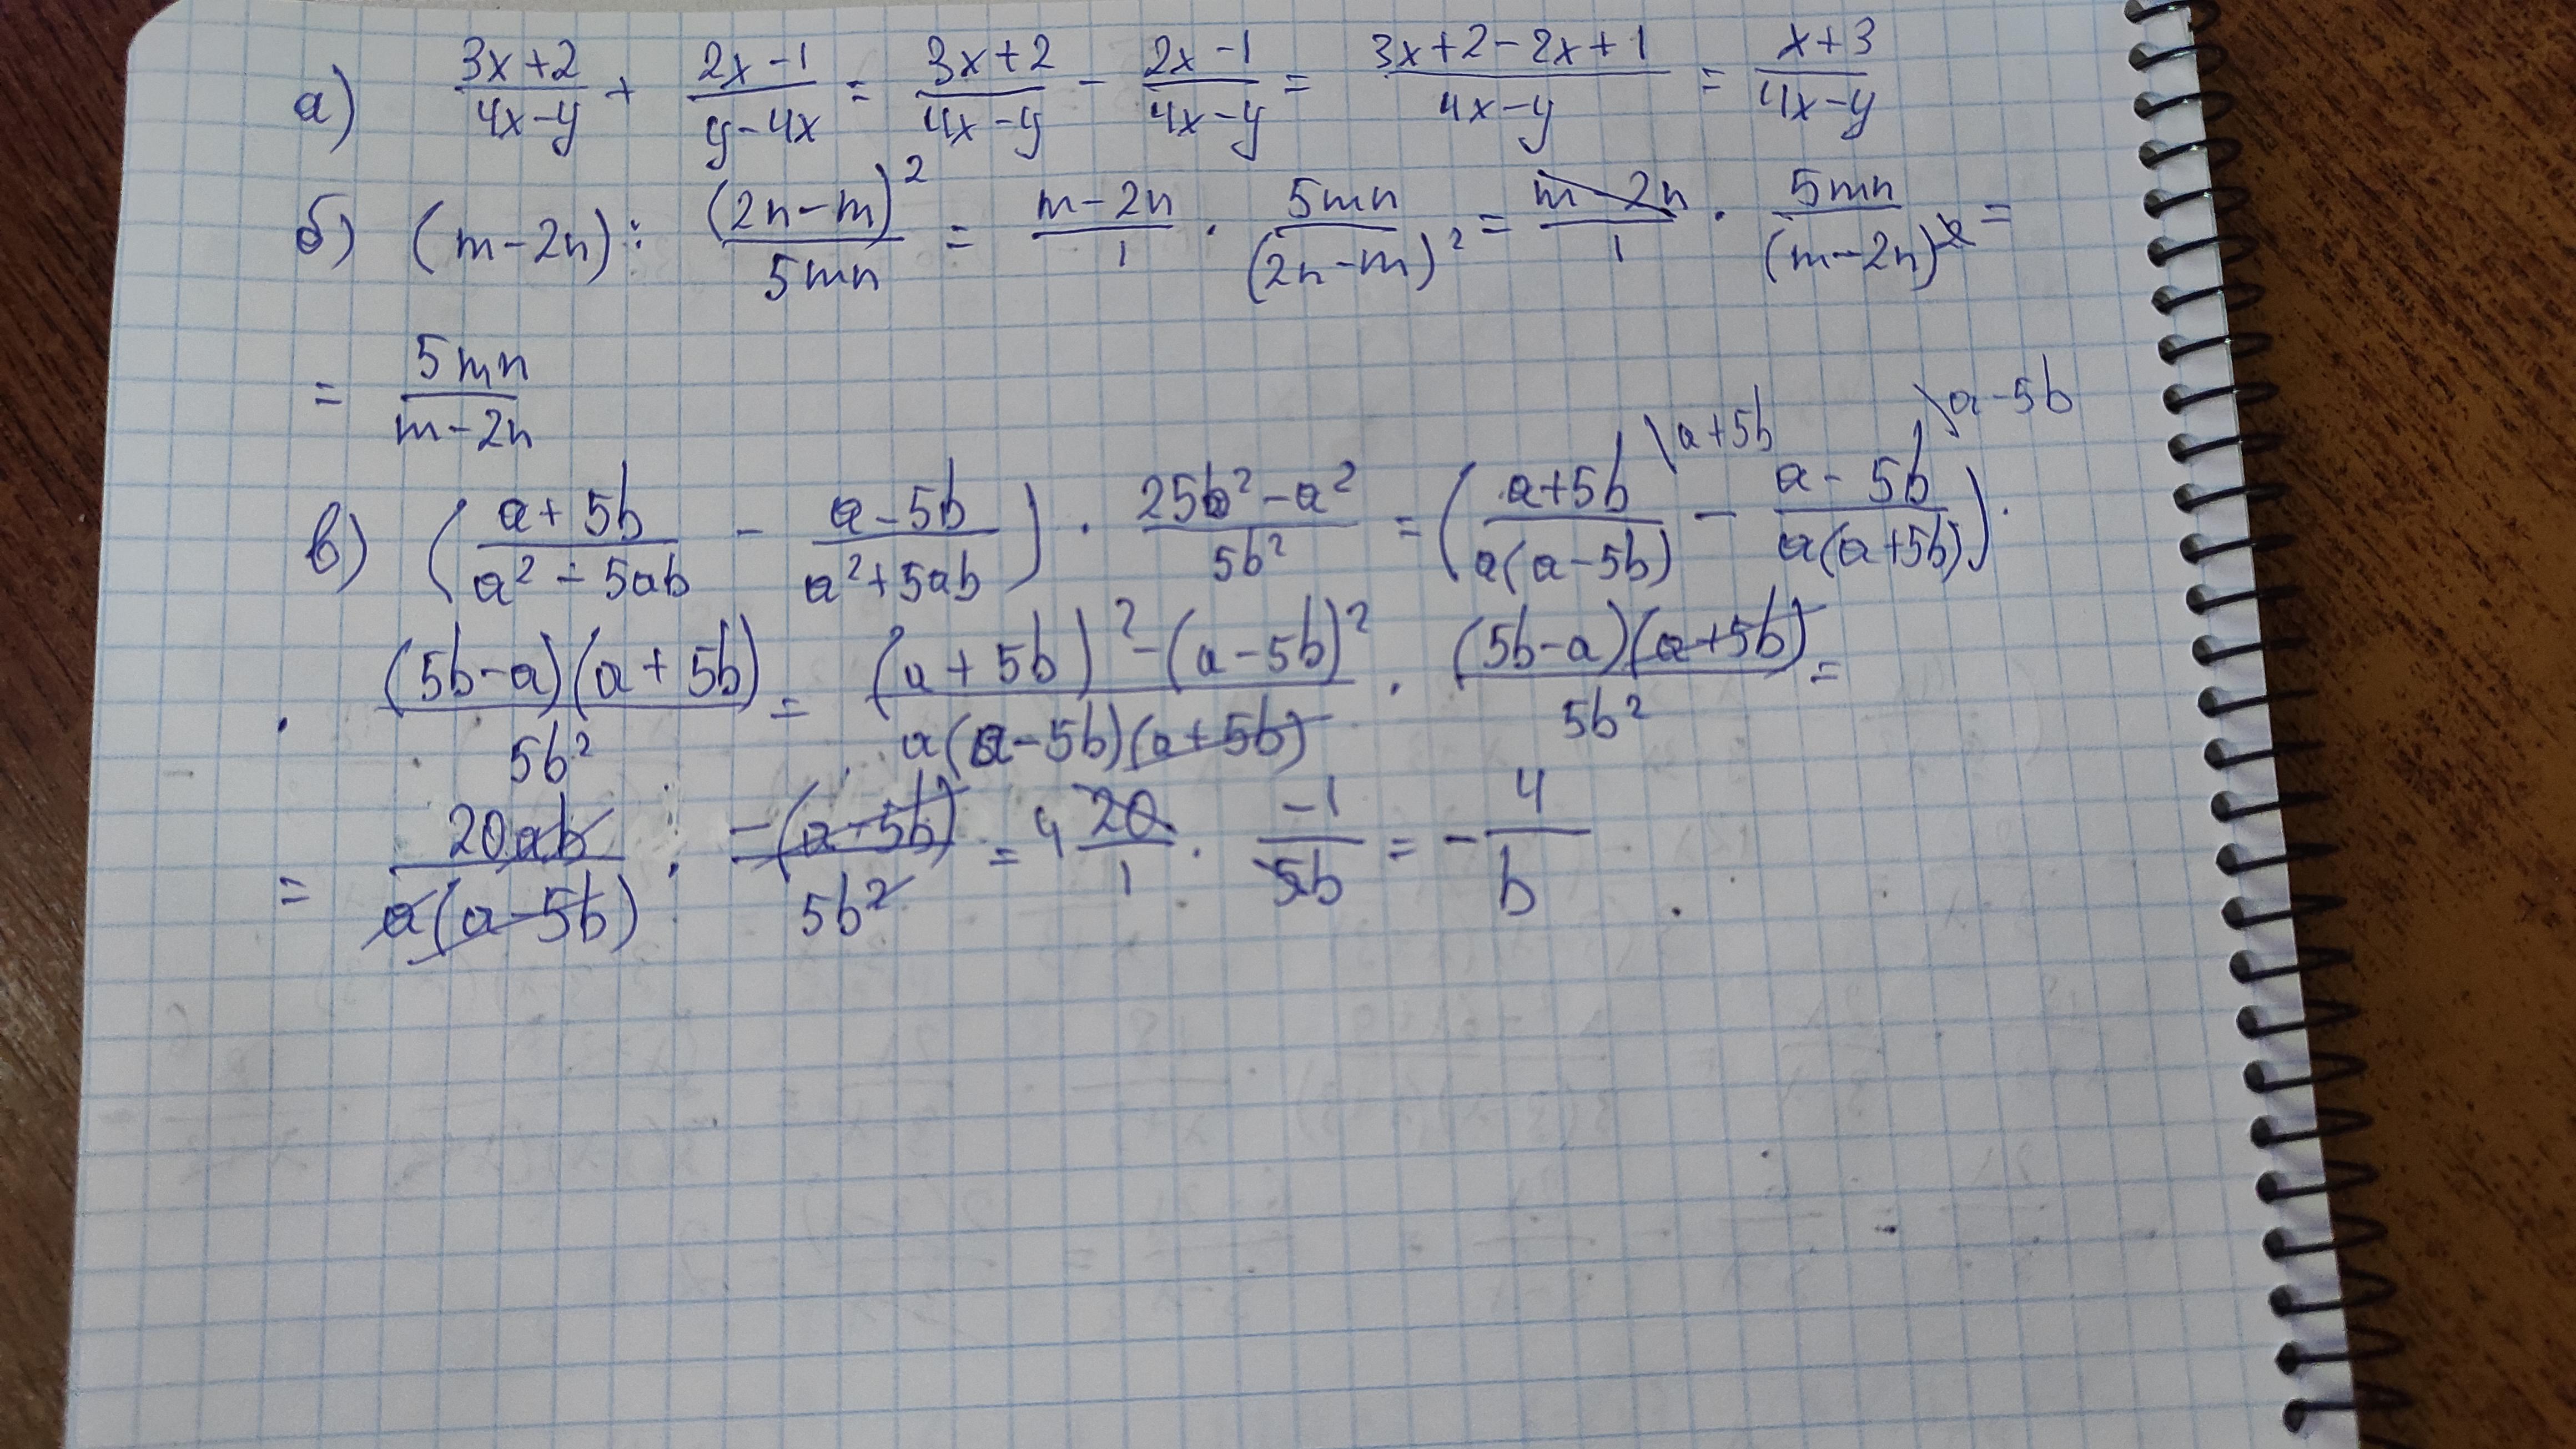 а) (3x+2)/(4x-y) + (2x-1)/(y-4x) = (3x+2)/(4x-y) - (2x-1)/(4x-y) = (3x+2-2x+1)/(4x-y) = (x+3)/(4x-y)
б) (m-2n) : (2n-m)²/(5mn) = (m-2n)/1 · 5mn/(2n-m)² = (m-2n)/1 · 5mn/(m-2n)² =
= 5mn/(m-2n)
в) ((a+5b)/(a²-5ab) - (a-5b)/(a²+5ab)) · (25b²-a²)/(5b²) = ((a+5b)/(a(a-5b)) \a+5b - (a-5b)/(a(a+5b)) \a-5b) ·
· (5b-a)(a+5b)/(5b²) = ((a+5b)²-(a-5b)²)/(a(a-5b)(a+5b)) · (5b-a)(a+5b)/(5b²) =
= 20ab/(a(a-5b)) · -(a-5b)/(5b²) = 4 20/1 · -1/(5b) = - 4/b